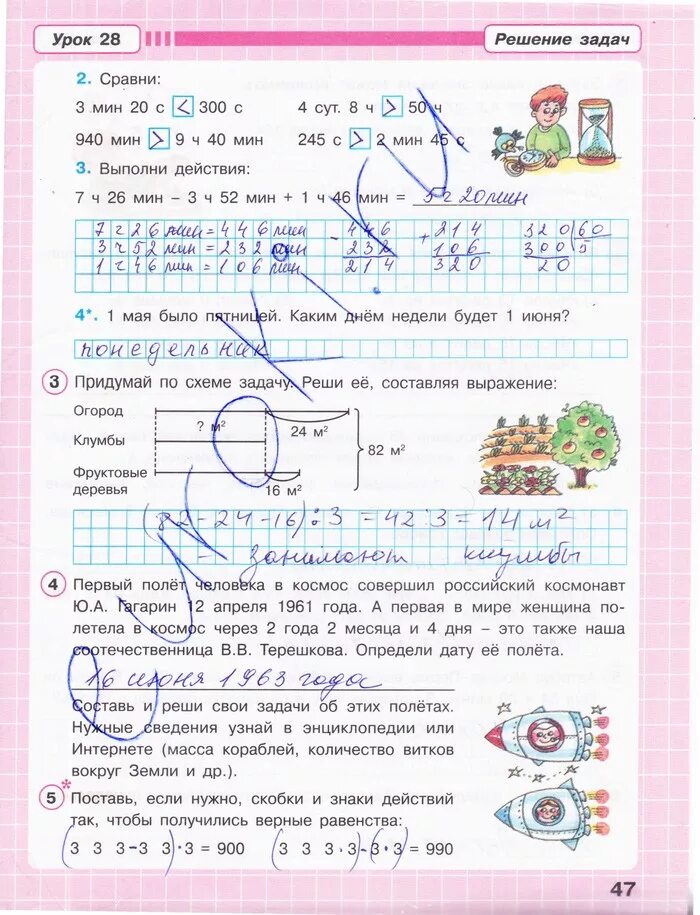 Урок 28
Решение задач
2. Сравни:
3 мин 20 с < 300 с 4 сут. 8 ч > 50 ч
940 мин > 9 ч 40 мин 245 с > 2 мин 45 с
3. Выполни действия:
7 ч 26 мин – 3 ч 52 мин + 1 ч 46 мин = 5 ч 20 мин
7 ч 26 мин = 446 мин - 446 + 214 320 60
3 ч 52 мин = 232 мин 232 106 300 5
1 ч 46 мин = 106 мин 214 320 20
4*. 1 мая было пятницей. Каким днём недели будет 1 июня?
понедельник
3 Придумай по схеме задачу. Реши её, составляя выражение:
Огород
? м² 24 м²
Клумбы 82 м²
Фруктовые
деревья 16 м²
(82-24-16):3 = 42:3 = 14 м²
- занимают клумбы
4 Первый полёт человека в космос совершил российский космонавт
Ю.А. Гагарин 12 апреля 1961 года. А первая в мире женщина по-
летела в космос через 2 года 2 месяца и 4 дня – это также наша
соотечественница В.В. Терешкова. Определи дату её полёта.
16 июня 1963 года
Составь и реши свои задачи об этих полётах.
Нужные сведения узнай в энциклопедии или
Интернете (масса кораблей, количество витков
вокруг Земли и др.).
5* Поставь, если нужно, скобки и знаки действий
так, чтобы получились верные равенства:
(3 3 3 - 3 3) · 3 = 900 (3 3 3 · 3) - (3 · 3) = 990
47